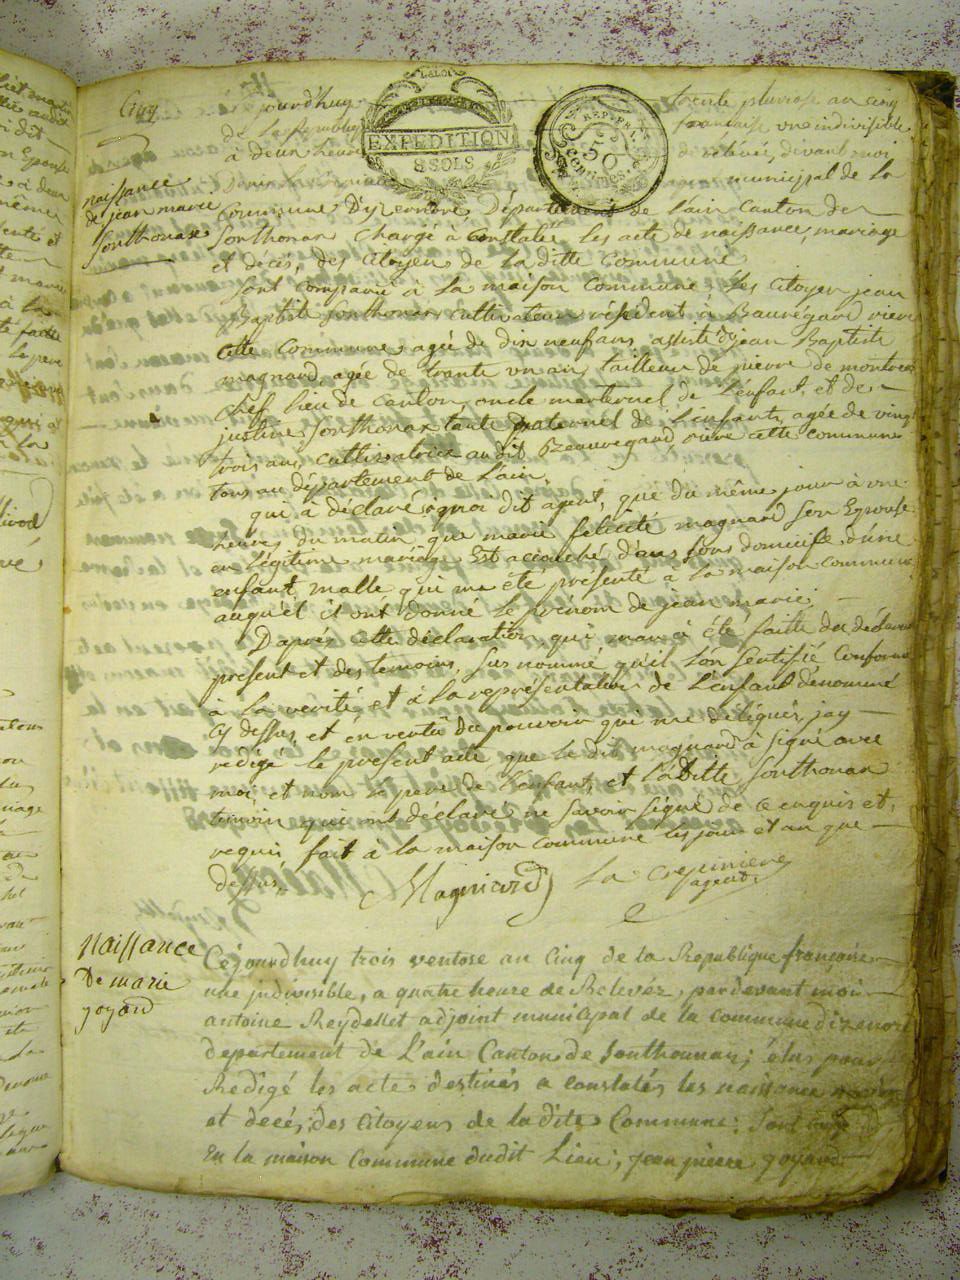 Cinq
jourd'huy
trente pluviose an cinq
de La Republiq
francaise une indivisible
à deux heure
de relevée, devant moi
municipal de la
LA LOI
EXPEDITION
8 SOLS
REP. FR.
50
Centimes
naissance
de jean marie
Sonthonax
Commune D'yzernore Département de L'ain Canton de
Sonthonax Chargé à Constatée les acte de naissance, mariage
et décès, des Citoyen de la ditte Commune
Sont comparu à la maison Commune Les Citoyen jean
Baptiste Sonthonax Cultivateur résident à Beauregard rière
Cette Commune agée de dix neuf ans, assisté de jean Baptiste
magnard, agée de trante un an, tailleur de pierre de montreal
Chef lieu de Canton, oncle marternel de L'enfant, et de
justine Sonthonax tante paternel de L'enfant, agée de vingt
trois an, Cultivatrice audit Beauregard rière cette commune
tous au département de L'ain,
qui à déclaré a moi dit agent, que du même jour à une
heure du matin que marie félicité magnard Son Epouse
en légitime mariage Est accouché dans Sons domicile d'une
enfant malle qui ma été présenté à la maison Commune
auquel il ont donné le prenom de jean marie;
D'après cette déclaration, qui mon à été faitte du déclarant
présent et des temoins, Sus nommé qu'il Son Sertifié Conforme
a La vérité, et à la représentation de L'enfant dénommé
Cy dessus, et en vertû du pouvoir qui me délégués, jay
rédigé le présent acte que le dit magnard à Signé avec
moi, et non le pere de L'enfant, et Laditte Sonthonax
temoin qui ont déclaré ne Savoir Signé de ce enquis et
requis, fait à la maison Commune les jour et an que
dessus.
Magniard La Crepiniere
agent
Naissance
De marie
goyard
Cejourdhuy trois ventose an Cinq de la Republique françoise
une indivisible, a quatre heure de Relevéz, pardevant moi
antoine Reydellet adjoint municipal de la Commune dizenore
departement de L'ain Canton de Sonthounax; élus pour
Redigé les actes destinés a Constatés les naissance
et decés, des Citoyens de la dite Commune; Sont
En la maison Commune dudit Lieu, jean pierre goyard